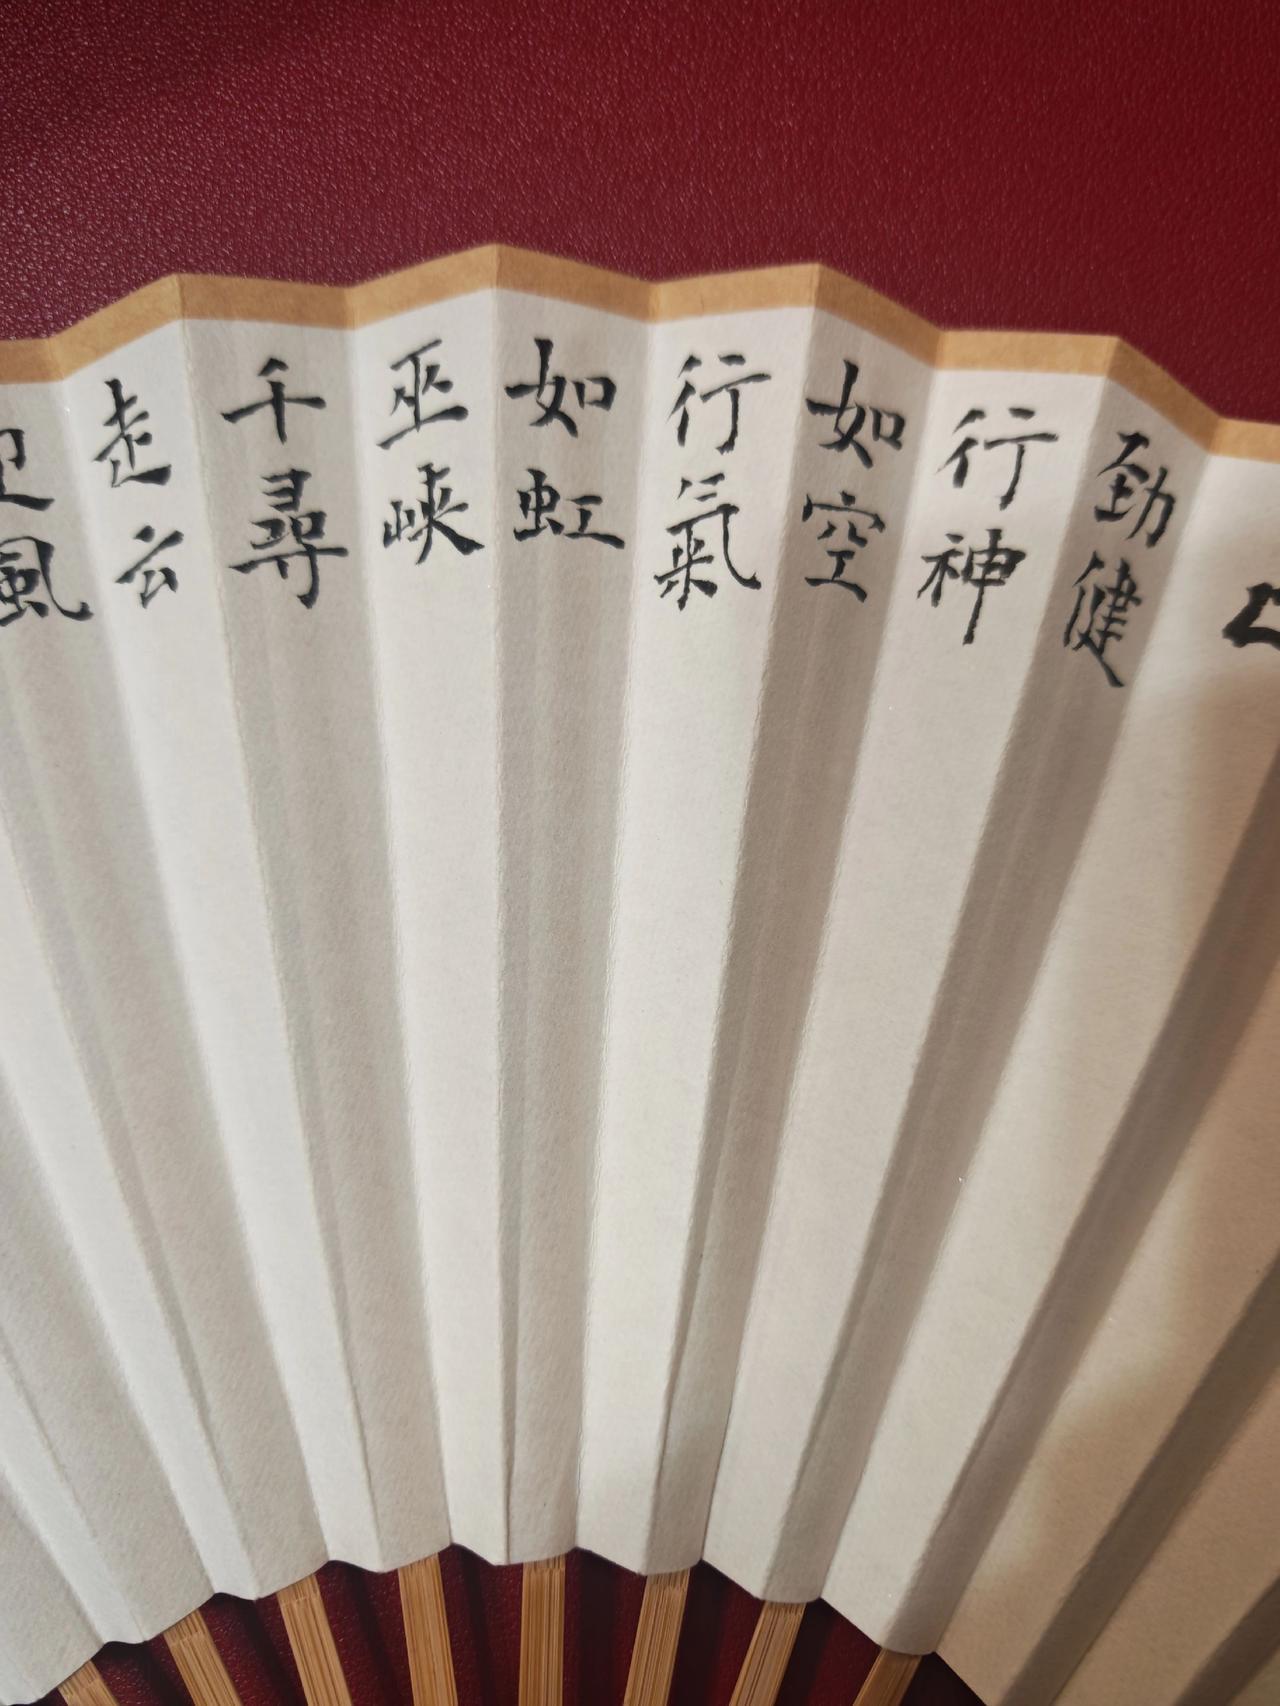 劲健
行神
如空
行氣
如虹
巫峡
千尋
走云
風